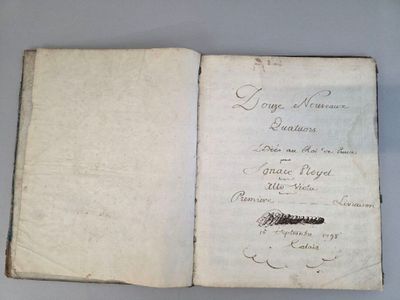 Douze Nouveaux
Quatuors
Dédiés au Roi de Prusse
Ignace Pleyel
Alto Viola
Première Livraison
15 Septembre 1798
Calais